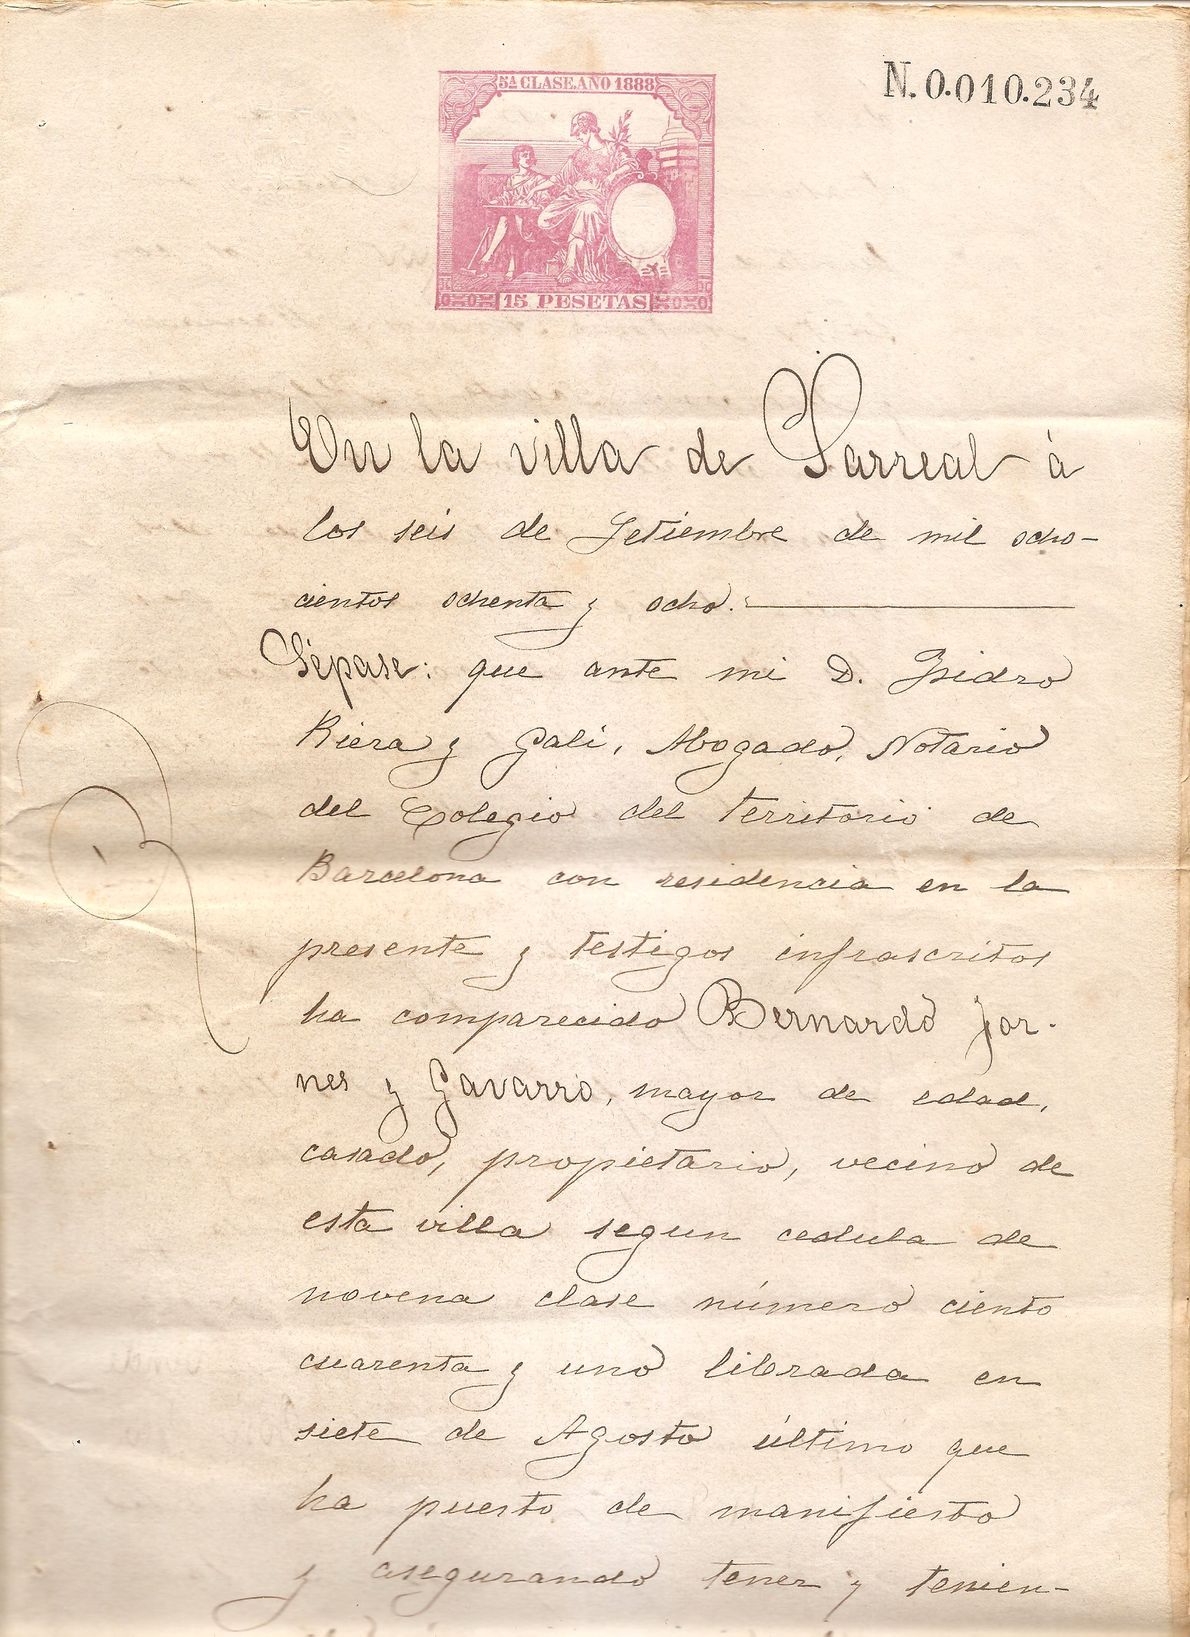 5ª CLASE.AÑO 1888
N.0.010.234
15 PESETAS
En la villa de Sarreal á
los seis de Setiembre de mil ocho-
cientos ochenta y ocho.
Sépase: que ante mi D. Isidro
Riera y Galí, Abogado, Notario
del Colegio del territorio de
Barcelona con residencia en la
presente y testigos infrascritos
ha comparecido Bernardo Jor-
nes y Gavarró, mayor de edad,
casado, propietario, vecino de
esta villa segun cedula de
novena clase número ciento
cuarenta y uno librada en
siete de Agosto último que
ha puesto de manifiesto
y asegurando tener y tenien-